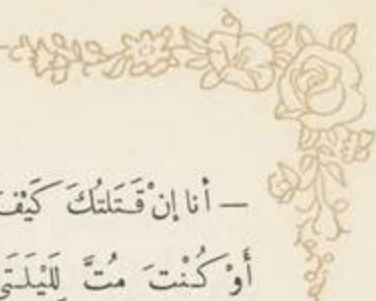 — أنا إنْ قَتَلتُكَ كَيْفَ
أَوْ كُنْتَ مُتَّ لِلَيْلَتَي